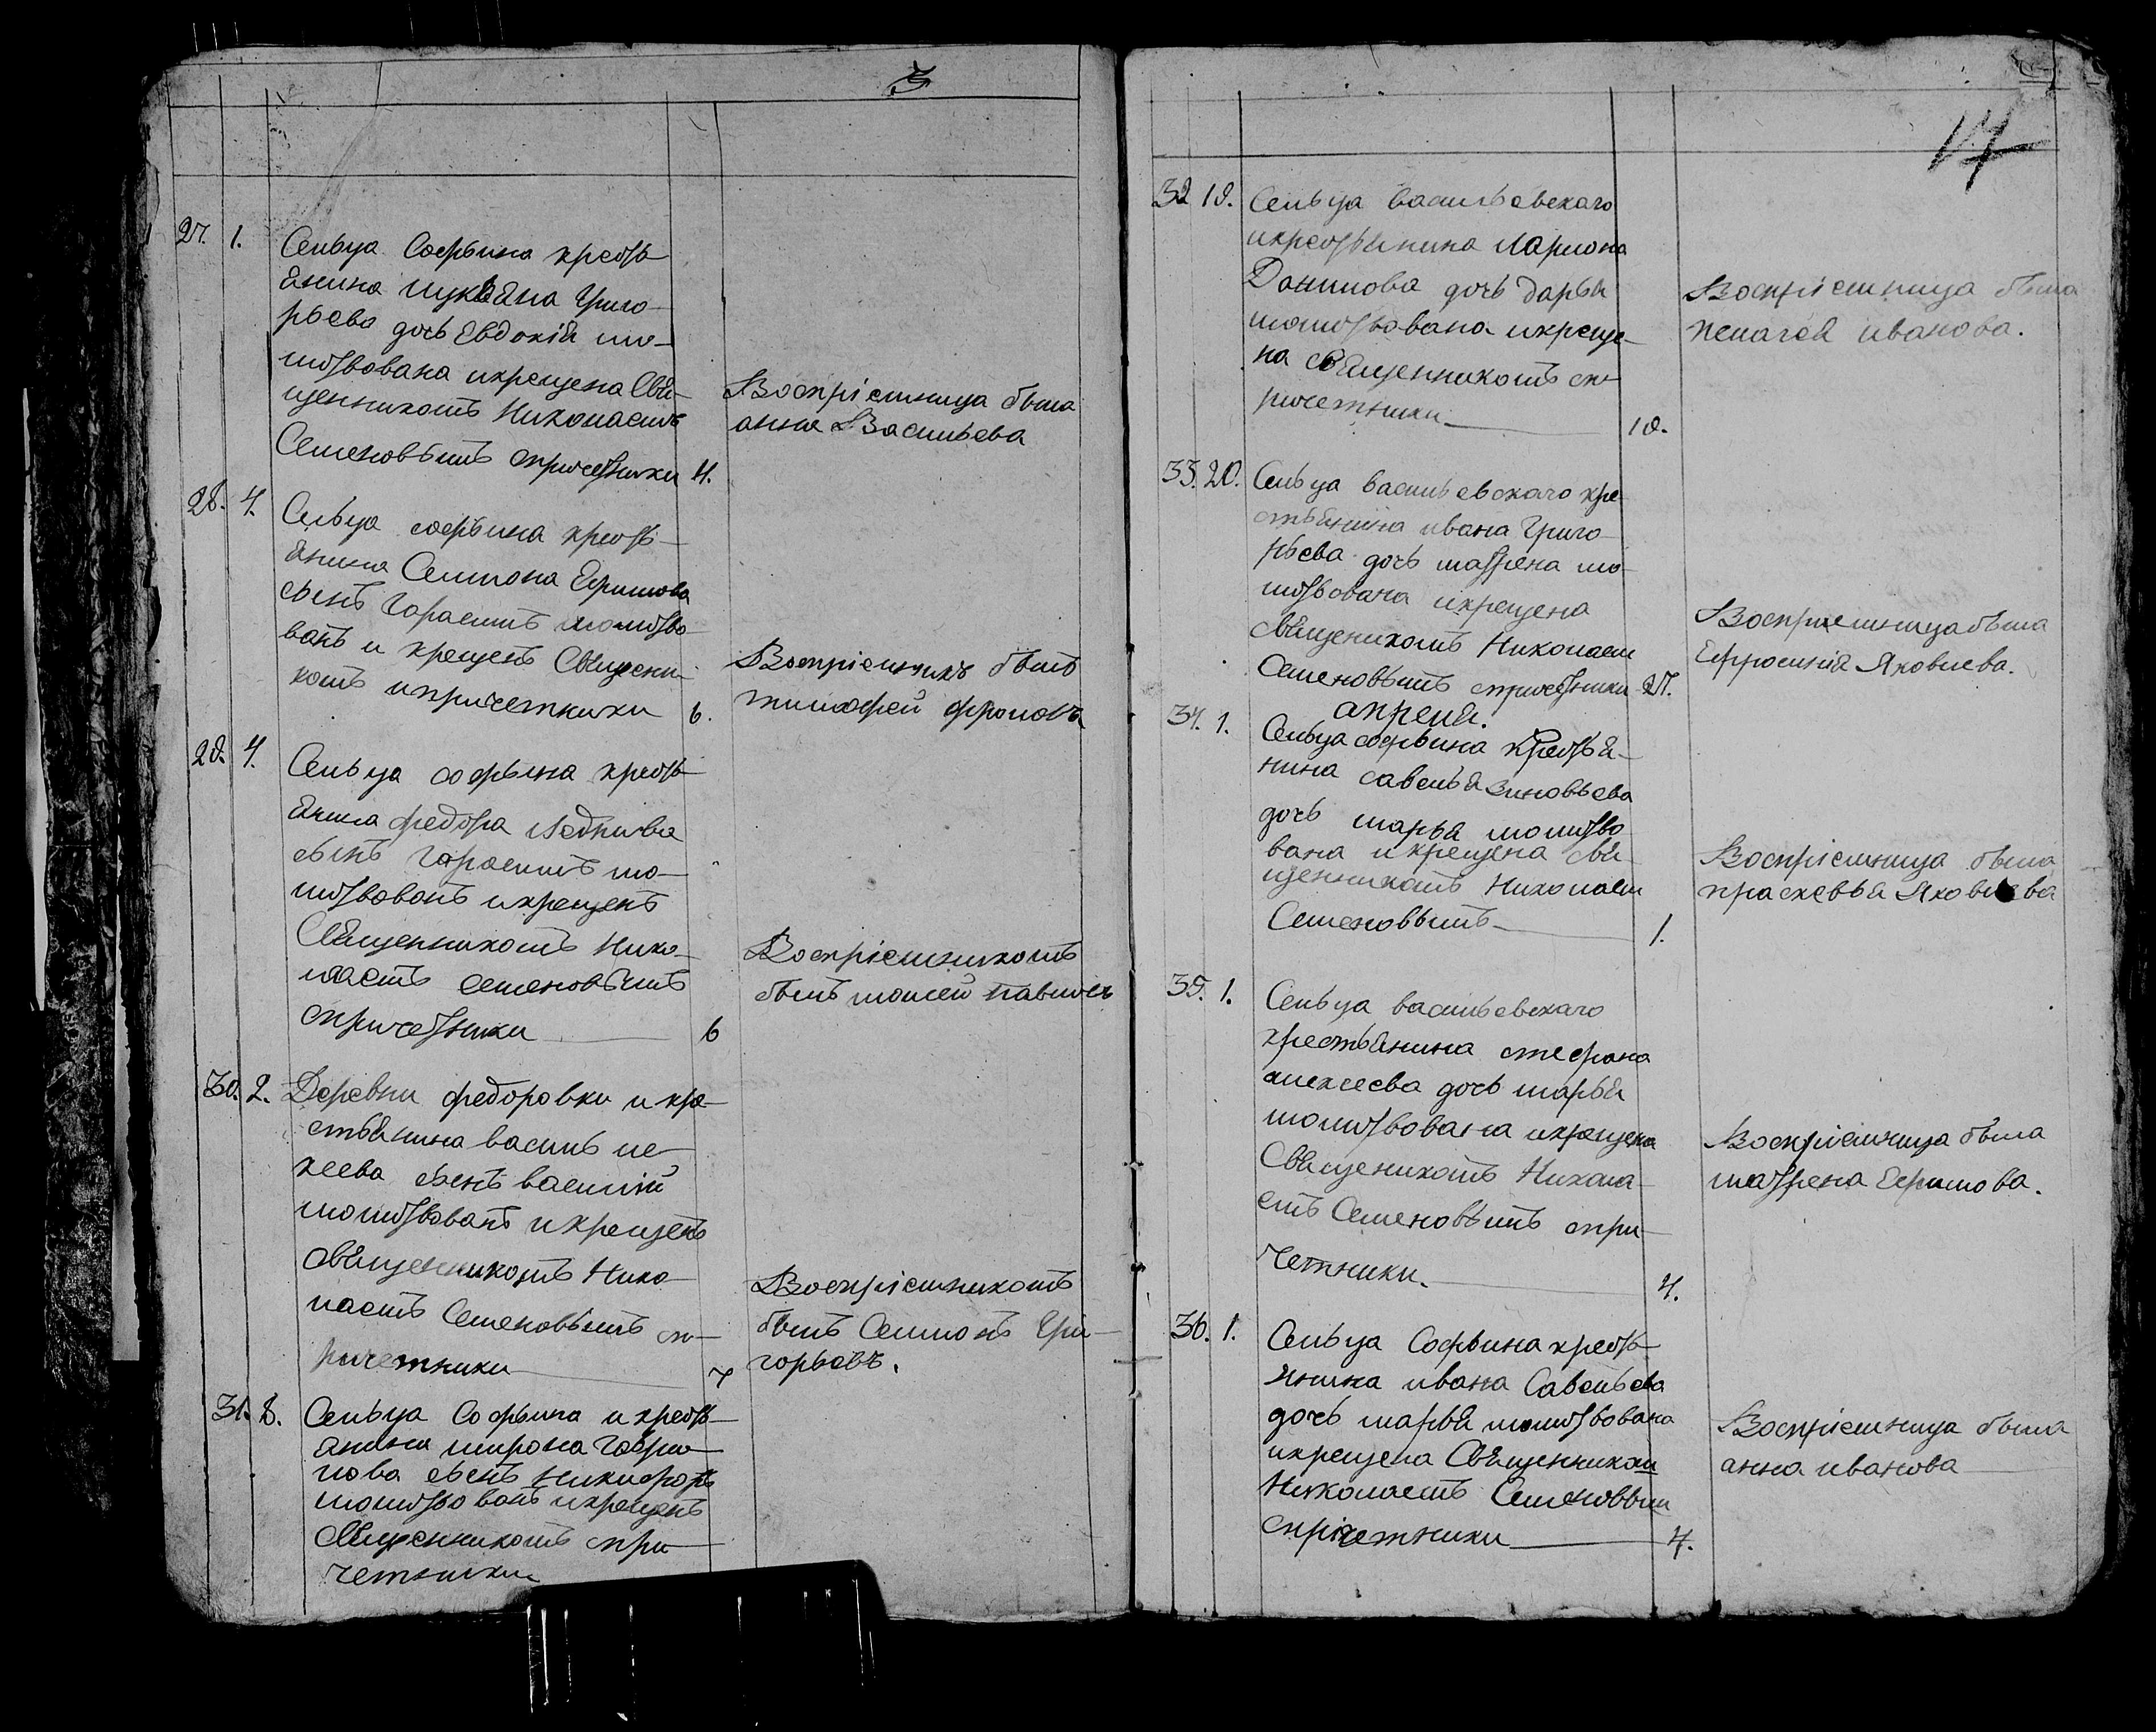 3
27. 1. Сельца Софьина кресть-
янина Лукьяна Григо-
рьева дочь Евдокія мо-
литвована икрещена Свя-
щенникомъ Николаемъ
Семеновымъ спричетники 4.
Воспріемница была
анна Васильева
28. 4. Сельца софьина кресть-
янина Семиона Ефимова
сынъ Гарасимъ молитво-
ванъ и крещенъ Священи-
комъ ипричетники 6.
Воспріемникъ былъ
тимофей фроловъ
29. 4. Сельца софьина кресть-
янина федора
сынъ Гарасимъ мо-
литвованъ икрещенъ
Священникомъ Нико-
лаемъ Семеновымъ
спричетники 6
Воспріемникомъ
былъ
30. 2. Деревни федоровки икре-
стьянина василь ле-
кеева сынъ василій
молитвованъ икрещенъ
священникомъ Нико-
лаемъ Семеновымъ сп-
ричетники 7
Воспріемникомъ
былъ Семионъ Гри-
горьевъ.
31. 8. Сельца Софьина икресть-
анина мирона Гаври-
лова сынъ Никифоръ
молитвованъ икрещенъ
Священникомъ спри-
четники
17
32 19. Сельца васильевскаго
икрестьянина Лариона
Данилова дочь дарья
молитвована икреще-
на священникомъ сп-
ричетники 19.
Воспріемница была
пелагея иванова.
33. 20. Сельца васильевскаго кре-
стьянина ивана Григо-
рьева дочь матрена мо-
литвована икрещена
священикомъ Николаем
Семеновымъ спричетники 27.
Восприемница была
Ефросинія Яковлева.
апреля.
34. 1. Сельца софьина Крестья-
нина савелья Зиновьева
дочь марья молитво
вана икрещена свя-
щенникомъ Николаем
Семеновымъ 1.
Воспріемница была
прасковья Яковлева
35. 1. Сельца васильевскаго
крестьянина стефана
алексеева дочь марья
молитвована икрещена
Священикомъ Никола-
емъ Семеновымъ спри-
четники. 4.
Воспріемница была
матрена Ефимова.
36. 1. Сельца Софьина кресть-
янина ивана Савельева
дочь марья молитвована
икрещена Священником
Николаемъ Семеновым
спричетники 4.
Воспріемница была
анна иванова